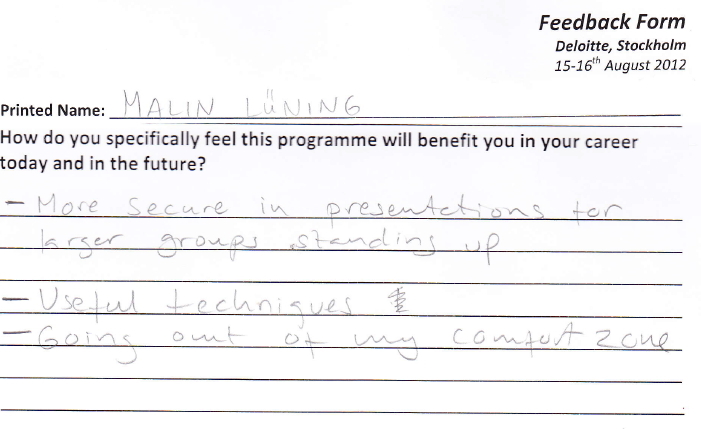 Feedback Form
Deloitte, Stockholm
15-16th August 2012
Printed Name: MALIN LÜNING
How do you specifically feel this programme will benefit you in your career
today and in the future?
- More secure in presentations for
larger groups standing up
- Useful techniques
- Going out of my comfort zone